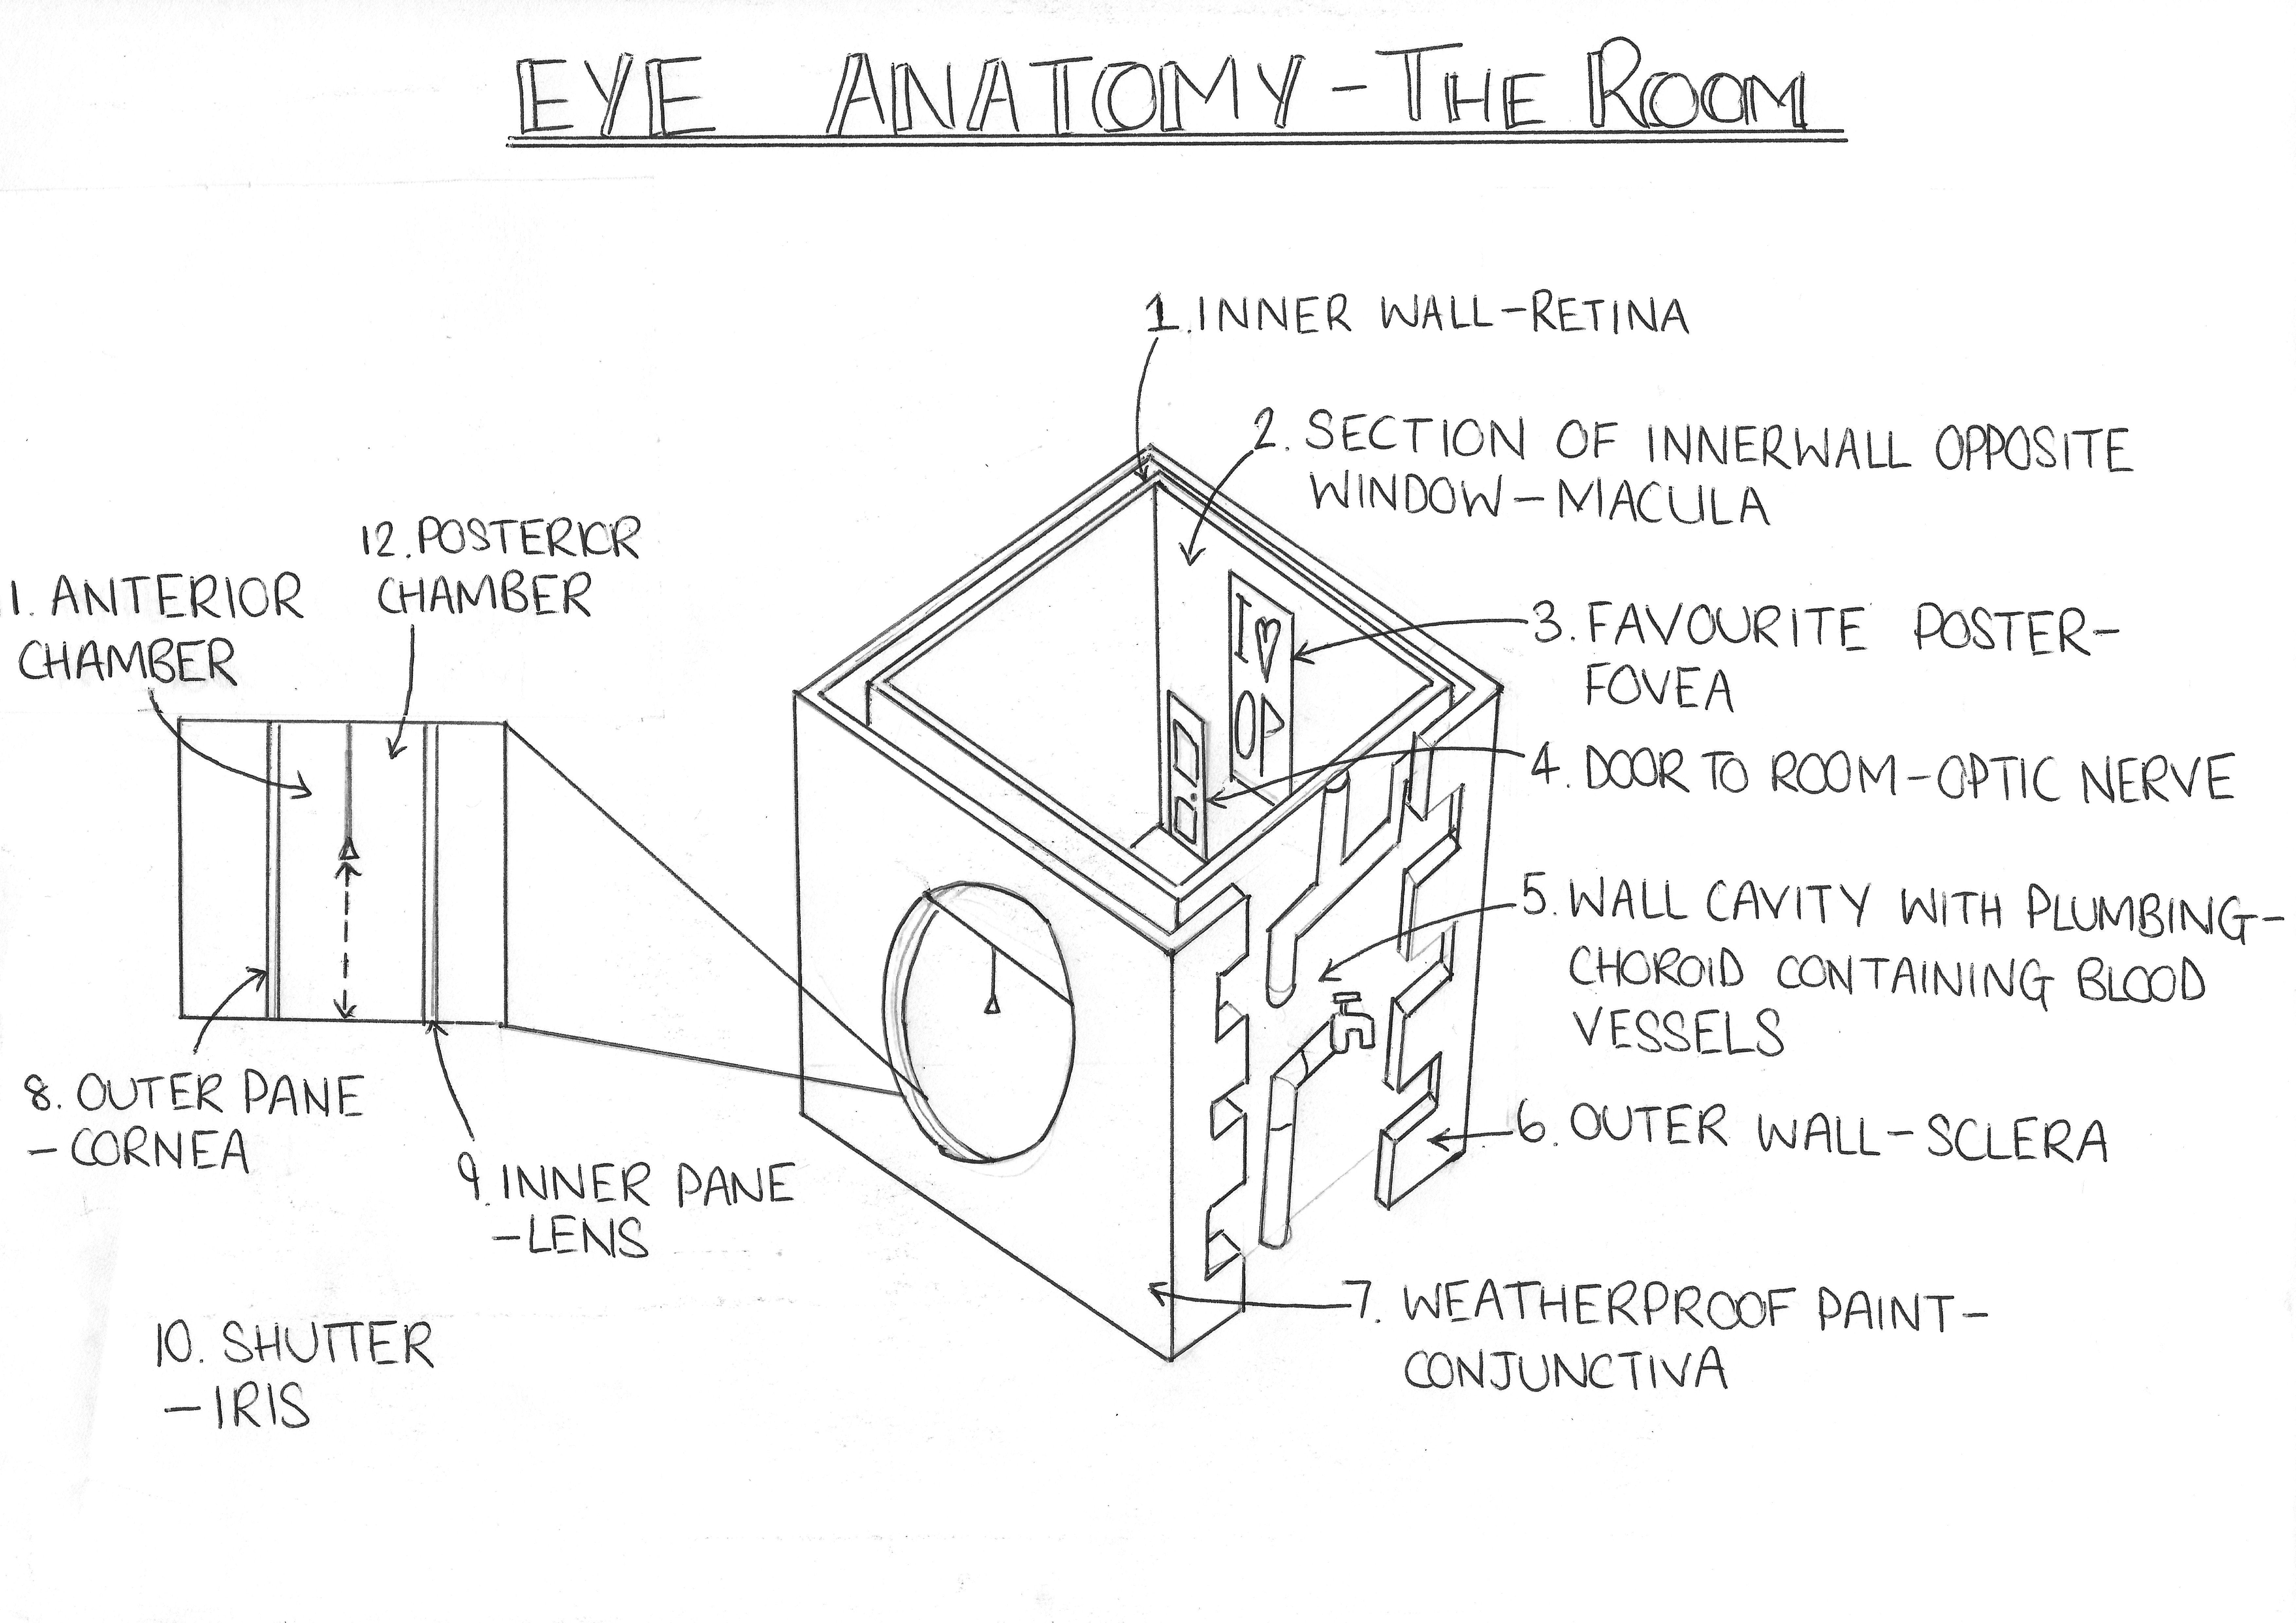 EYE ANATOMY - THE ROOM
1. INNER WALL - RETINA
2. SECTION OF INNERWALL OPPOSITE
WINDOW - MACULA
3. FAVOURITE POSTER -
FOVEA
4. DOOR TO ROOM - OPTIC NERVE
5. WALL CAVITY WITH PLUMBING -
CHOROID CONTAINING BLOOD
VESSELS
6. OUTER WALL - SCLERA
7. WEATHERPROOF PAINT -
CONJUNCTIVA
8. OUTER PANE
- CORNEA
9. INNER PANE
- LENS
10. SHUTTER
- IRIS
1. ANTERIOR
CHAMBER
12. POSTERIOR
CHAMBER
I ♥
OP